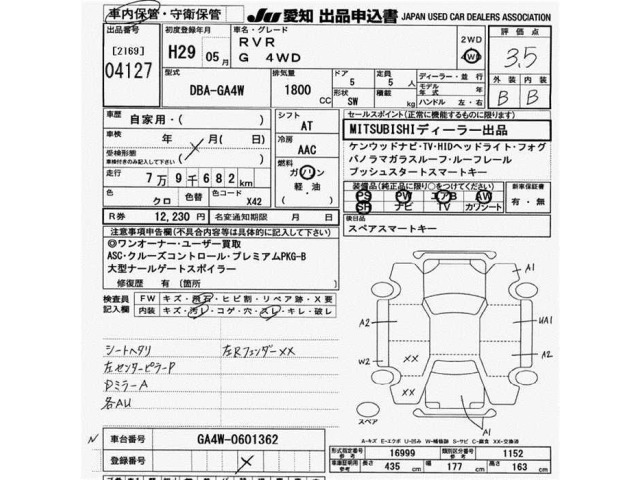 車内保管・守衛保管
JU 愛知 出品申込書 JAPAN USED CAR DEALERS ASSOCIATION
出品番号
[2169]
04127
初度登録年月
H29 05月
車名・グレード
RVR
G 4WD
2WD
4WD
評価点
3.5
型式
DBA-GA4W
排気量
1800 CC
ドア
5
定員
5 人
形状
SW
積載
kg
ディーラー・並行
モデル年式 年
ハンドル 左・右
外装 内装
B B
車歴
自家用・( )
車検
年 月 日
受検形態
車検付きのみ記入して下さい
走行
7万9千682km
色
クロ
色替
色コード
X42
シフト
AT
冷房
AAC
燃料
ガソリン
軽油
( )
セールスポイント(正常に機能するものに限ります)
MITSUBISHIディーラー出品
ケンウッドナビ・TV・HIDヘッドライト・フォグ
パノラマガラスルーフ・ルーフレール
プッシュスタートスマートキー
装備品(純正品に限り○をつけてください)
PS PW エアB AW
SR ナビ TV カワシート
新車保証書
有・無
R券 12,230 円 名変通知期限 月 日
後日品
スペアスマートキー
注意事項申告欄(不具合内容等は具体的に記入して下さい)
◎ワンオーナー・ユーザー買取
ASC・クルーズコントロール・プレミアムPKG-B
大型ナールゲートスポイラー
修復歴 有(箇所 )
検査員記入欄
FW キズ・飛石・ヒビ割・リペア跡・X要
内装 キズ・汚レ・コゲ・穴・スレ・キレ・破レ
シートヘタリ 左RフェンダーXX
左センターピラーP
DミラーA
各AU
A1
A2
UA1
W2
XX
A2
XX
A1
スペア
A-キズ E-エクボ U-凹み W-補修跡 S-サビ C-腐食 XX-交換済
N
車台番号 GA4W-0601362
登録番号
形式指定番号 参考 16999 類別区分番号 参考 1152
車庫証明用 参考 長さ 435 cm 幅 177 cm 高さ 163 cm